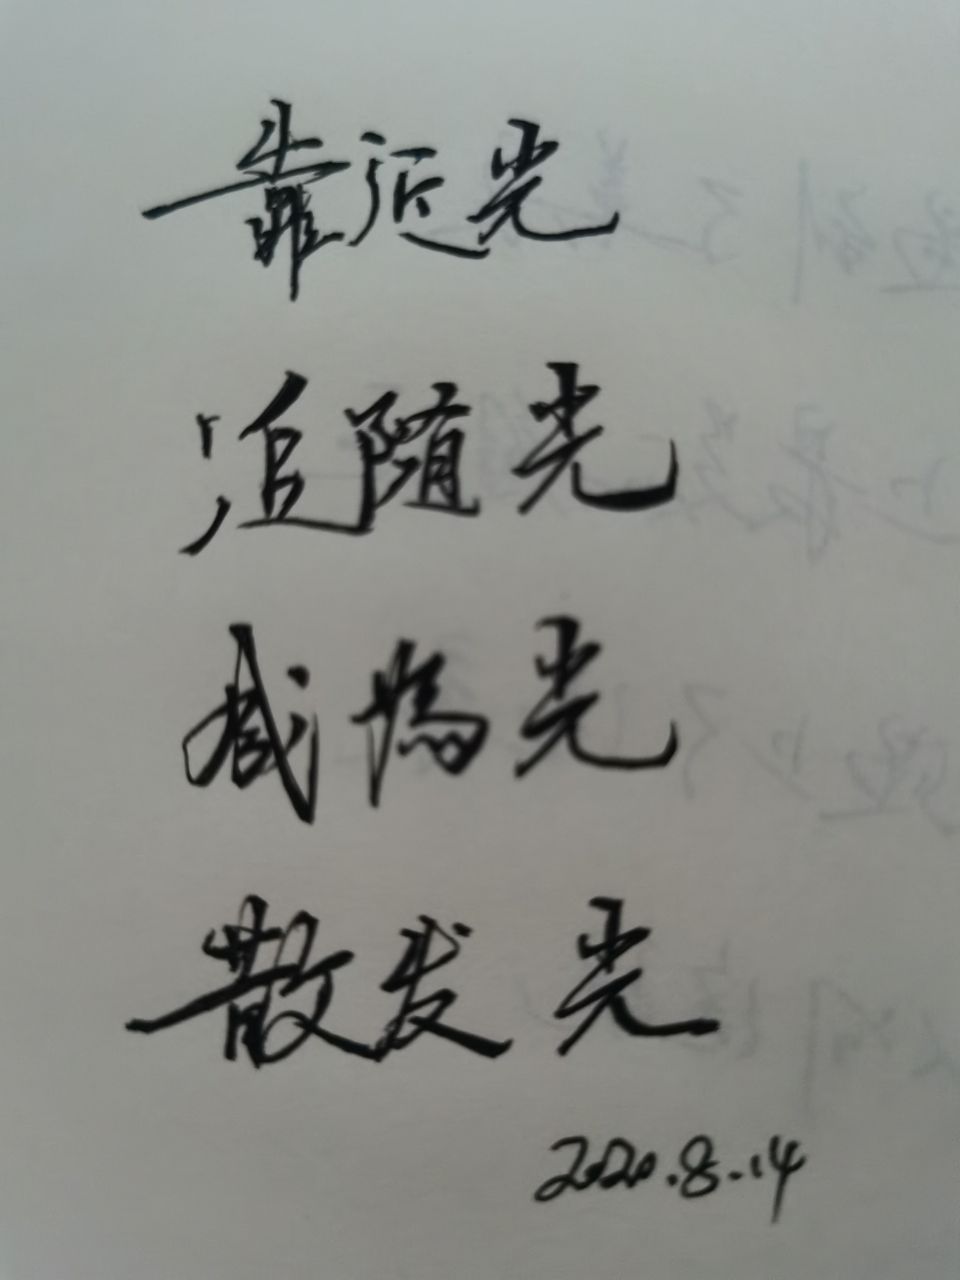 靠近光
追随光
成为光
散发光
2020.8.14